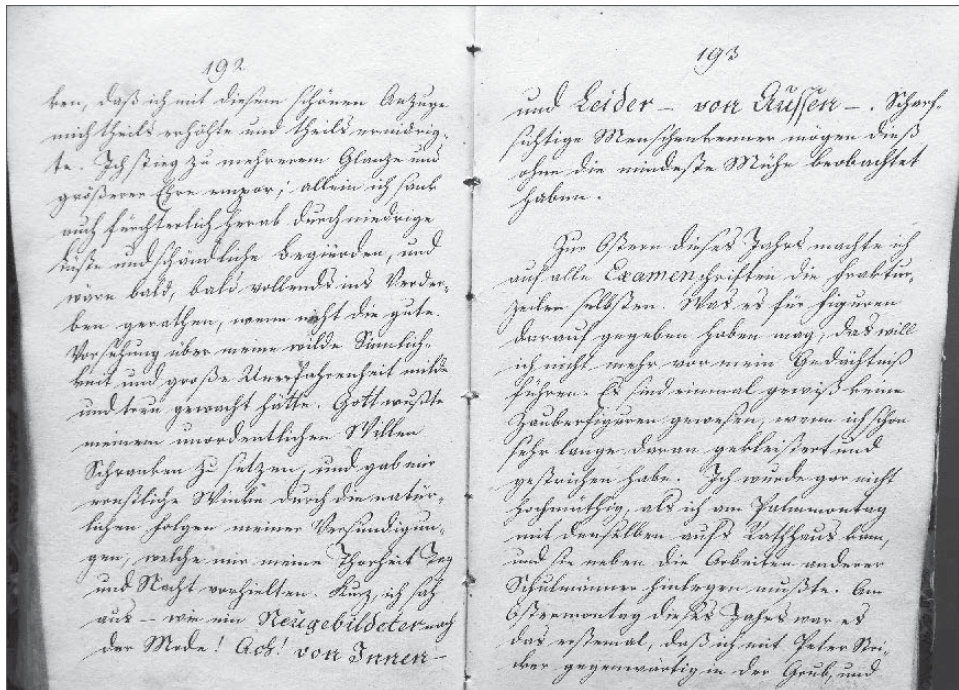 192
ken, daß ich mit diesem schönen Anzuge
mich theils erhöhte und theils erniedrig-
te. Ich stieg zu mehrerem Glanze und
größerer Ehre empor; allein ich sank
auch fürchterlich herab durch niedrige
Lüste und schändliche Begierden, und
wäre bald, bald vollends ins Verder-
ben gerathen, wenn nicht die gute
Vorsehung über meine wilde Sinnlich-
keit und große Unerfahrenheit milde
und treu gewacht hätte. Gott wußte
meinem unordentlichen Willen
Schranken zu setzen, und gab mir
ernstliche Winke durch die natür-
lichen Folgen meiner Versündigun-
gen, welche mir meine Thorheit Tag
und Nacht vorhielten. Kurz ich sah
aus – wie ein Neugebildeter nach
der Mode! Ach! von Innen –
193
und Leider – von Aussen –. Scharf-
sichtige Menschenkenner mögen dieß
ohne die mindeste Mühe beobachtet
haben.
Zur Ostern dieses Jahrs machte ich
auf alle Examenschriften die Fraktur-
zeilen selbsten. Was es für Figuren
darauf gegeben haben mag, das will
ich nicht mehr vor mein Gedächtniß
führen. Es sind einmal gewiß keine
Zauberfiguren gewesen, wenn ich schon
sehr lange daran gekleistert und
gestrichen habe. Ich wurde gar nicht
hochmüthig, als ich am Palmmontag
mit denselben aufs Rathhaus kam,
und sie neben die Arbeiten anderer
Schulmänner hinlegen mußte. Am
Ostermontag dieses Jahrs war es
das erstemal, daß ich mit Peter Stri-
cker gegenwärtig in der Grub, und